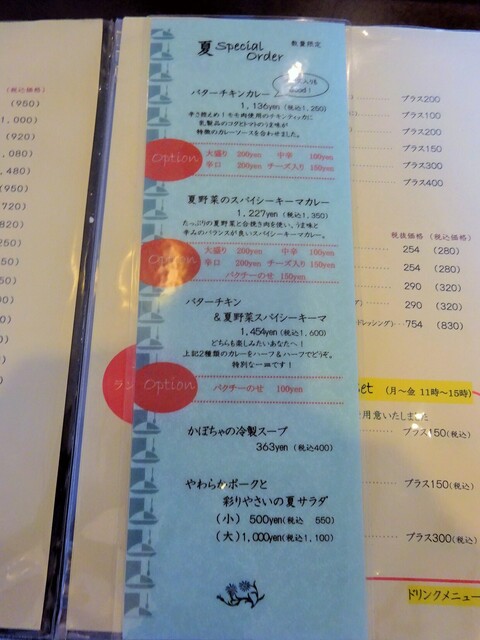 夏 Special Order
数量限定
バターチキンカレー
1,136yen (税込1,250)
辛さ控めい!モモ肉使用のチキンティッカに
乳製品のコクとトマトのうま味が
特徴のカレーソースを合わせました。
Option
大盛り 200yen 中辛 100yen
辛口 200yen チーズ入り 150yen
夏野菜のスパイシーキーマカレー
1,227yen (税込1,350)
たっぷりの夏野菜と合挽き肉を使い、うま味と
辛みのバランスが良いスパイシーキーマカレー。
Option
大盛り 200yen 中辛 100yen
辛口 200yen チーズ入り 150yen
パクチーのせ 150yen
バターチキン
&夏野菜スパイシーキーマ
1,454yen (税込1,600)
どちらも楽しみたいあなたへ!
上記2種類のカレーをハーフ&ハーフでどうぞ。
特別な一皿です!
ラン
Option
パクチーのせ 100yen
かぼちゃの冷製スープ
363yen (税込400)
やわらかポークと
彩りやさいの夏サラダ
(小) 500yen(税込 550)
(大)1,000yen(税込1,100)
税込価格)
(950)
(920)
(950)
プラス200
プラス100
プラス200
プラス150
プラス300
プラス400
税抜価格 (税込価格)
254 (280)
254 (280)
290 (320)
290 (320)
ドレッシング)‥‥754 (830)
set (月~金 11時~15時)
用意いたしました
プラス150(税込)
プラス150(税込)
プラス300(税込)
ドリンクメニュー